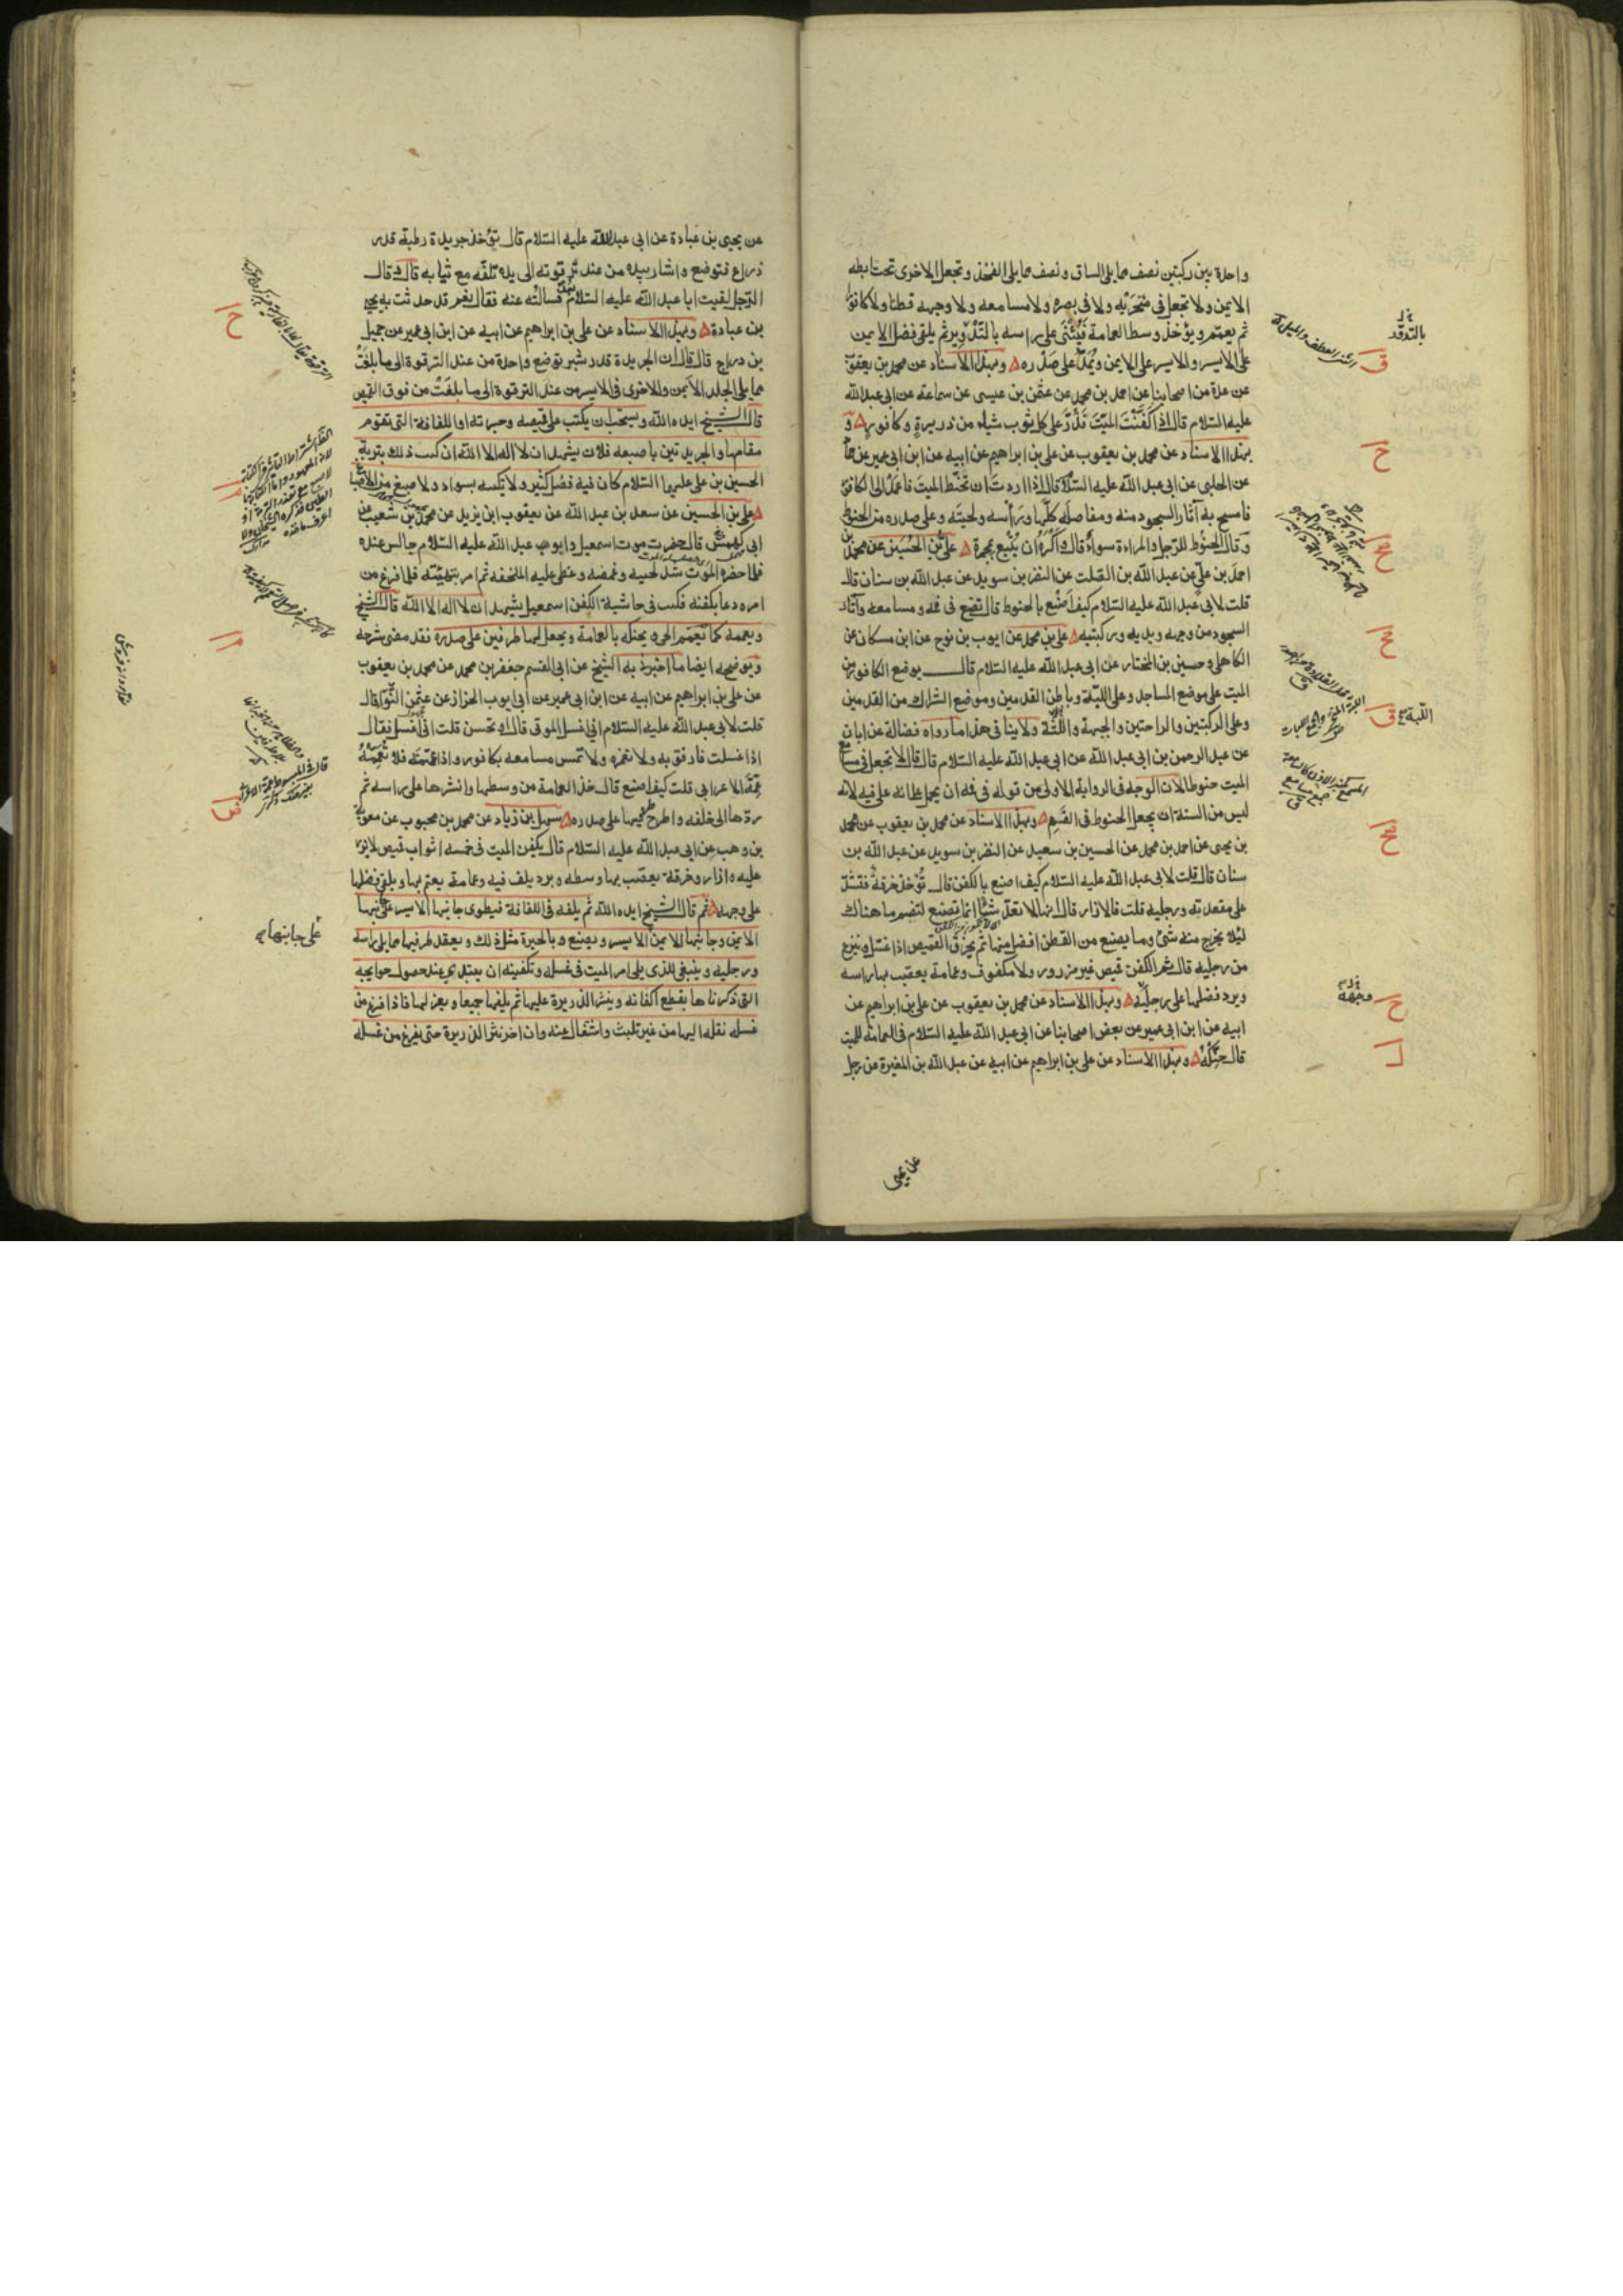 واحدة بين ركبتين نصف مما يلى الساق ونصف مما يلى الفخذ وتجعل الاخرى تحت ابطه
الايمن ولا تجعل فى منخريه ولا فى بصره ولا مسامعه ولا وجهه قطنا ولا كافورا
ثم يعمّم ويؤخذ وسط العمامة فيثنى على راسه بالتدوير ثم يلقى فضل الايمن
على الايسر والايسر على الايمن ويمدّ على صدره وبهذا الاسناد عن محمد بن يعقوب
عن عدة من اصحابنا عن احمد بن محمد عن عثمن بن عيسى عن سماعة عن ابى عبد الله
عليه السلام قال اذا كَفَّنْتَ الميّتَ فذُرّ على كل ثوب شيئا من ذريرةٍ وكافورٍ و
بهذا الاسناد عن محمد بن يعقوب عن على بن ابراهيم عن ابيه عن ابن ابى عمير عن حماد
عن الحلبى عن ابى عبد الله عليه السلام قال اذا اردت ان تحنّط الميت فاعمد الى الكافور
فامسح به آثار السجود منه ومفاصله كلّها وراسه ولحيته وعلى صدره من الحنوط
وقال الحنوط للرّجل والمراءة سواء قال واَكْرَهُ ان يُتْبع بمجمرة على بن الحسين عن محمد بن
احمد بن على عن عبد الله بن الصلت عن النضر بن سويد عن عبد الله بن سنان قال
قلت لابى عبد الله عليه السلام كيف اَصْنع بالحنوط قال تضع فى فمه ومسامعه وآثار
السجود من وجهه ويديه وركبتيه على بن محمد عن ايوب بن نوح عن ابن مسكان عن
الكاهلى وحسين بن المختار عن ابى عبد الله عليه السلام قال يوضع الكافور من
الميت على موضع المساجد وعلى اللبّة وباطن القدمين وموضع الشراك من القدمين
وعلى الركبتين والراحتين والجبهة واللبّة ولا ينافى هذا ما رواه فضالة عن ابان
عن عبد الرحمن بن ابى عبد الله عن ابى عبد الله عليه السلام قال قال لا تجعل فى مسامع
الميت حنوطا لان الوجه فى الرواية الاولى من قوله فى فمه ان يحمل على انه على فيه لانه
ليس من السنة ان يجعل الحنوط فى الفم وبهذا الاسناد عن محمد بن يعقوب عن محمد
بن يحيى عن احمد بن محمد عن الحسين بن سعيد عن النضر بن سويد عن عبد الله بن
سنان قال قلت لابى عبد الله عليه السلام كيف اصنع بالكفن قال تُؤخذ خرقةٌ فتشدّ
على مقعدته ورجليه قلت فالازار قال انها لا تعدّ شيئا انما تصنع لتضم ما هناك
لئلا يخرج منه شئ وما يصنع من القطن افضل منها ثم يخرق القميص اذا غسل وينزع
من رجليه قال ثم الكفن قميص غير مزرور ولا مكفوف وعمامة يعصّب بها راسه
ويرد فضلها على رجليه وبهذا الاسناد عن محمد بن يعقوب عن على بن ابراهيم عن
ابيه عن ابن ابى عمير عن بعض اصحابنا عن ابى عبد الله عليه السلام فى العمامة للميت
قال حنّكه وبهذا الاسناد عن على بن ابراهيم عن ابيه عن عبد الله بن المغيرة عن رجل
عن يحيى
اللبة
وجهه
عن يحيى بن عبادة عن ابى عبد الله عليه السلام قال تؤخذ جريدة رطبة قدر
ذراع فتوضع واشار بيده من عند ترقوته الى يده تلفّه مع ثيابه قال وقال
الرّجل لقيت ابا عبد الله عليه السلام بعد فسالته عنه فقال نعم قد حدثت به يحيى
بن عبادة وبهذا الاسناد عن على بن ابراهيم عن ابيه عن ابن ابى عمير عن جميل
بن دراج قال قال ان الجريدة قدر شبر توضع واحدة من عند الترقوة الى ما بلغَتْ
مما يلى الجلد الايمن والاخرى فى الايسر من عند الترقوة الى ما بلغت من فوق القميص
قال الشيخ ايده الله ويستحب ان يكتب على قميصه وحبرته او اللفافة التى تقوم
مقامها والجريدتين باصبعه فلان يشهد ان لا اله الا الله ان كتب ذلك بتربة
الحسين بن على عليهما السلام كان فيه فضل كثير ولا يكتبه بسواد ولا صبغ من الاصباغ
على بن الحسين عن سعد بن عبد الله عن يعقوب ابن يزيد عن محمد بن شعيب عن
ابى كهمش قال حضرت موت اسمعيل وابو عبد الله عليه السلام جالس عنده
فلما حضره الموت شد لحييه وغمضه وغطى عليه الملحفة ثم امر بتهيئته فلما فرغ من
امره دعا بكفنه فكتب فى حاشية الكفن اسمعيل يشهد ان لا اله الا الله قال الشيخ
ويعممه كما يعمم الحى ويحنكه بالعمامة ويجعل لها طرفين على صدره فقد مضى شرحه
ويوضحه ايضا ما اخبرنى به الشيخ عن ابى القسم جعفر بن محمد عن محمد بن يعقوب
عن على بن ابراهيم عن ابيه عن ابن ابى عمير عن ابى ايوب الخزاز عن عثمن النّوا قال
قلت لابى عبد الله عليه السلام انى اغسل الموتى قال وتحسن قلت انى اغسل فقال
اذا غسلت فارفق به ولا تغمزه ولا تمس مسامعه بكافور واذا عممته فلا تعممه
عمّة الاعرابى قلت كيف اصنع قال خذ العمامة من وسطها وانشرها على راسه ثم
ردّها الى خلفه واطرح طرفيها على صدره سهل بن زياد عن محمد بن محبوب عن معوية
بن وهب عن ابى عبد الله عليه السلام قال يكفن الميت فى خمسة اثواب قميص لا يزر
عليه وازار وخرقة يعصّب بها وسطه وبرد يلف فيه وعمامة يعتم بها ويلقى فضلها
على وجهه ثم قال الشيخ ايده الله ثم يلفه فى اللفافة فيطوى جانبها الايسر على جانبها
الايمن وجانبها الايمن الايسر ويصنع بالحبرة مثل ذلك ويعقد طرفيها مما يلى راسه
ورجليه وينبغى للذى يلى امر الميت فى غسله وتكفينه ان يبتدئ عند حصول حوايجه
التى ذكرناها بقطع اكفانه وينثر الذريرة عليها ثم يلفها جميعا ويعزلها فاذا فرغ من
غسله نقله اليها من غير تلبث واشتغال عنه وان اخر نثر الذريرة حتى يفرغ من غسله
على جانبها